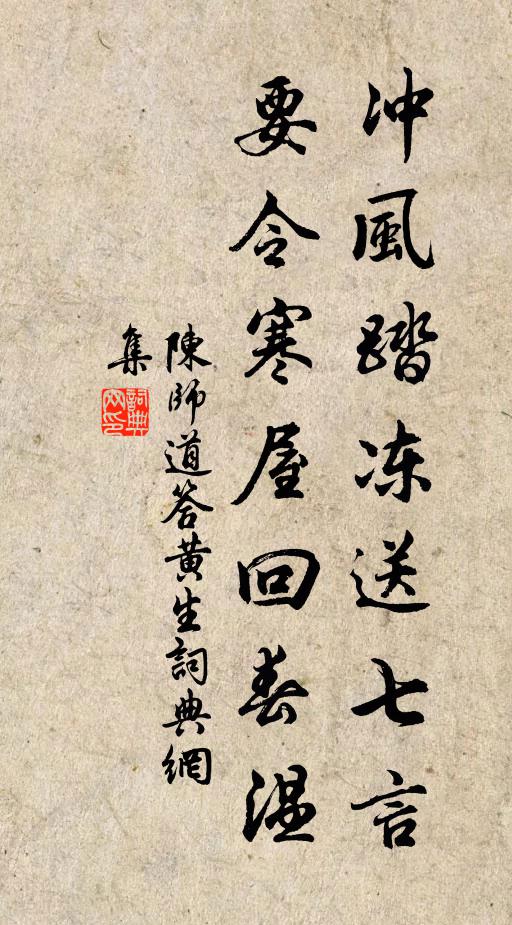 冲風踏冻送七言
要令寒屋回春温
陳師道答黄生詞典網
集
詞典網印